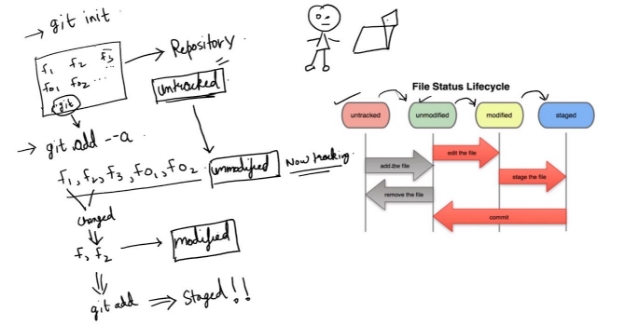 → git init
f1 f2 f3
fo1 fo2 ...
.git
Repository
untracked
→ git add --a
f1, f2, f3, fo1, fo2
unmodified
Now tracking
changed
f1, f2
modified
git add ⇒ Staged!!
File Status Lifecycle
untracked unmodified modified staged
edit the file
add the file
stage the file
remove the file
commit